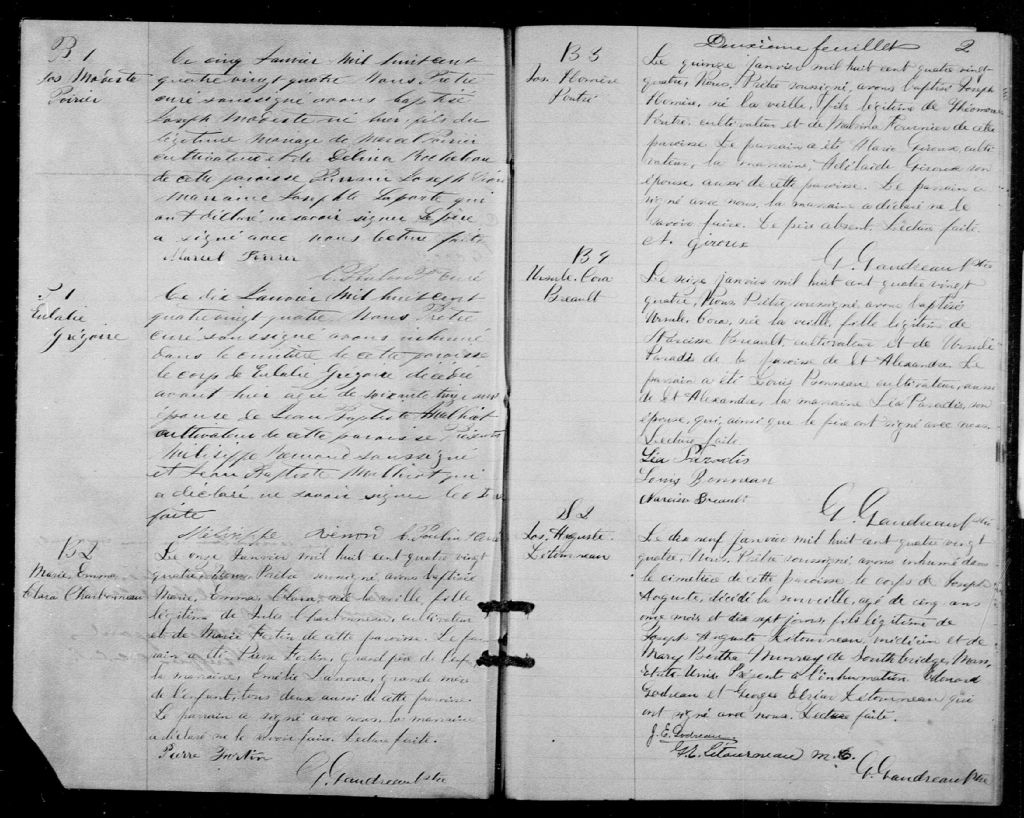 B 1
Jos Modeste
Poirier
Ce cinq Janvier Mil huit cent
quatre vingt quatre Nous Prêtre
curé soussigné avons baptisé
Joseph Modeste né hier, fils du
légitime mariage de Marcel Poirier
cultivateur et de Delina Rocheleau
de cette paroisse Parrain Joseph
Marraine Josephte Laporte qui
ont déclaré ne savoir signer Le père
a signé avec nous lecture faite
Marcel Poirier
S 1
Eulalie
Grégoire
Ce dix Janvier Mil huit cent
quatre vingt quatre Nous Prêtre
curé soussigné avons inhumé
dans le cimetière de cette paroisse
le corp de Eulalie Grégoire décédée
avant hier agée de soixante cinq ans
épouse de Jean Baptiste Mailhiot
cultivateur de cette paroisse Présents
soussigné
et Jean Baptiste Mailhiot qui
a déclaré ne savoir signer lecture
faite
B 2
Marie, Emma,
Clara Charbonneau
Le onze Janvier mil huit cent quatre vingt
quatre, Nous Prêtre soussigné, avons baptisé
Marie, Emma, Clara, née la veille, fille
légitime de Jules Charbonneau, cultivateur
et de Marie Fortin de cette paroisse. Le par-
rain a été Pierre Fortin, grand père de l'enfant
la marraine, Emélie Lanoue, grande mère
de l'enfant, tous deux aussi de cette paroisse.
Le parrain a signé avec nous, la marraine
a déclaré ne le savoir faire. Lecture faite.
Pierre Fortin
G. Gaudreault Ptre
Deuxième feuillet 2
B 3
Jos. Homère
Poutré
Le quinze janvier mil huit cent quatre vingt
quatre, Nous, Prêtre soussigné, avons baptisé Joseph
Homère, né la veille, fils légitime de
Poutré, cultivateur et de Malvina Fournier de cette
paroisse. Le parrain a été Giroux, culti-
vateur, la marraine, Adélaide Giroux son
épouse, aussi de cette paroisse. Le parrain a
signé avec nous, la marraine a déclaré ne le
savoir faire. Le père absent. Lecture faite.
A. Giroux
G. Gaudreault Ptre
B 4
Ursule, Cora
Breault
Le seize janvier mil huit cent quatre vingt
quatre, Nous Prêtre, soussigné avons baptisé
Ursule, Cora, née la veille, fille légitime de
Narcisse Breault cultivateur et de Ursule
Paradis de la paroisse de St Alexandre. Le
parrain a été Louis Bonneau cultivateur, aussi
de St Alexandre, la marraine Léa Paradis, son
épouse, qui, ainsi que le père ont signé avec nous.
Lecture faite
Léa Paradis
Louis Bonneau
Narcisse Breault
G. Gaudreault Ptre
S 2
Jos. Auguste
Létourneau
Le dix neuf janvier mil huit cent quatre vingt
quatre, Nous, Prêtre soussigné, avons inhumé dans
le cimetière de cette paroisse le corps de Joseph
Auguste, décédé la surveille, agé de cinq ans
onze mois et dix sept jours, fils légitime de
Joseph Auguste Létourneau, médecin et de
Mary Bertha Munroy de Southbridge, Mass,
Etats Unis. Présent à l'inhumation Edouard
Godreau et Georges Elzéar Létourneau qui
ont signé avec nous. Lecture faite.
J. E. Godreau
G. E. Létourneau m.
G. Gaudreault Ptre